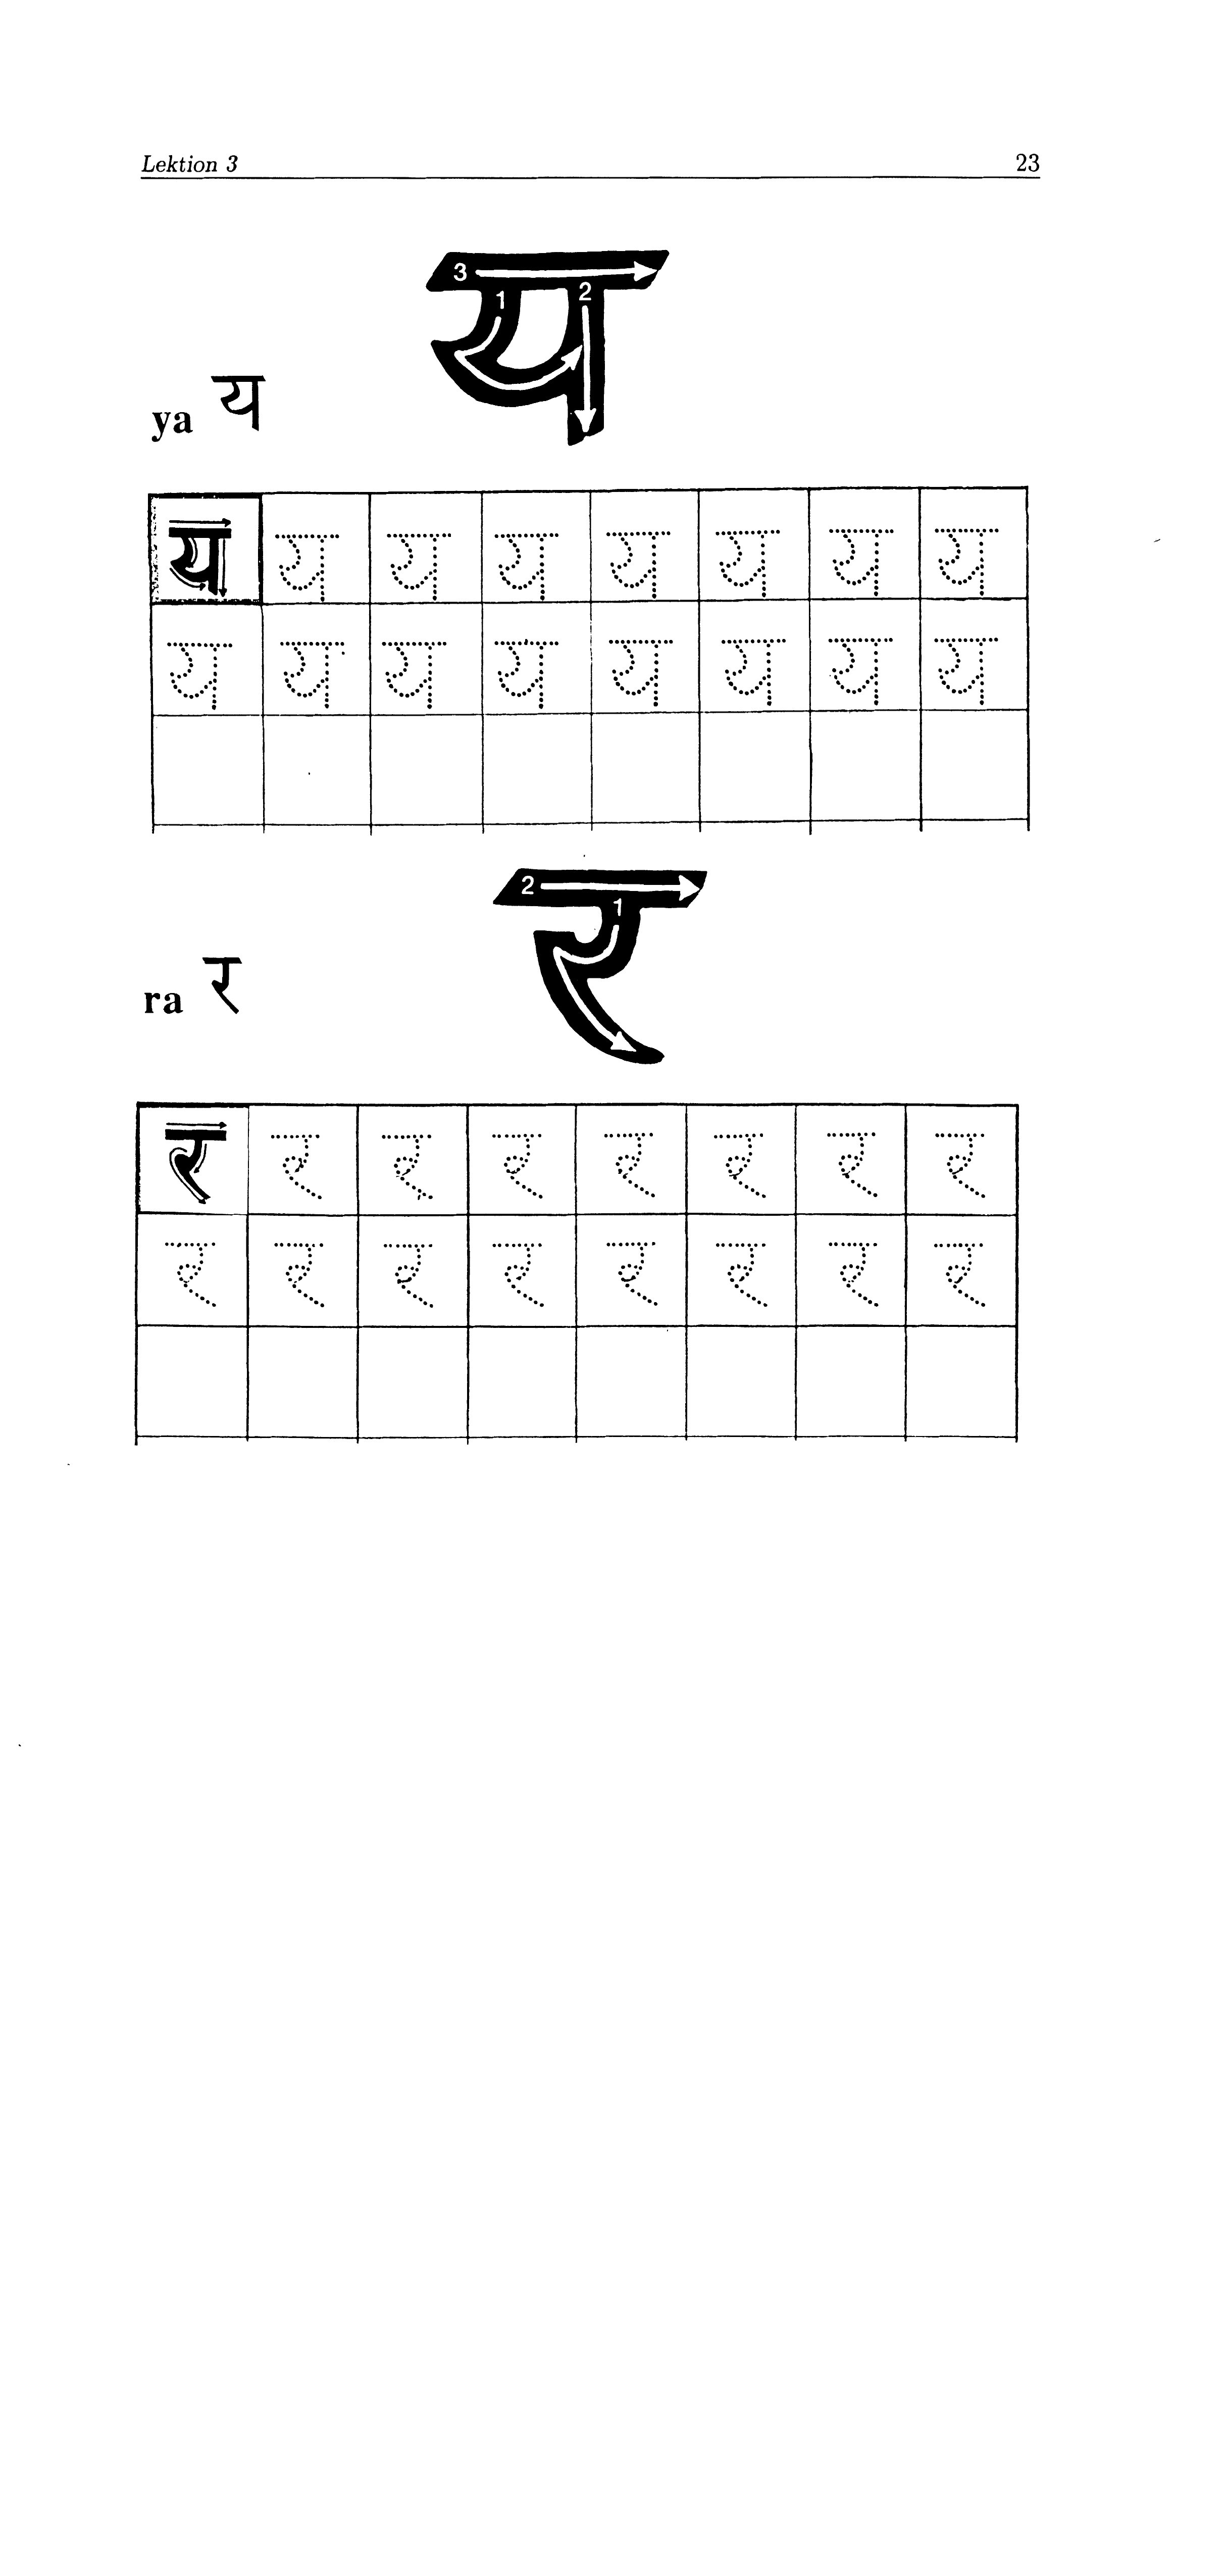 Lektion 3 23
3
1 2
य
ya य
य य य य य य य य
य य य य य य य य
2
1
र
ra र
र र र र र र र र
र र र र र र र र